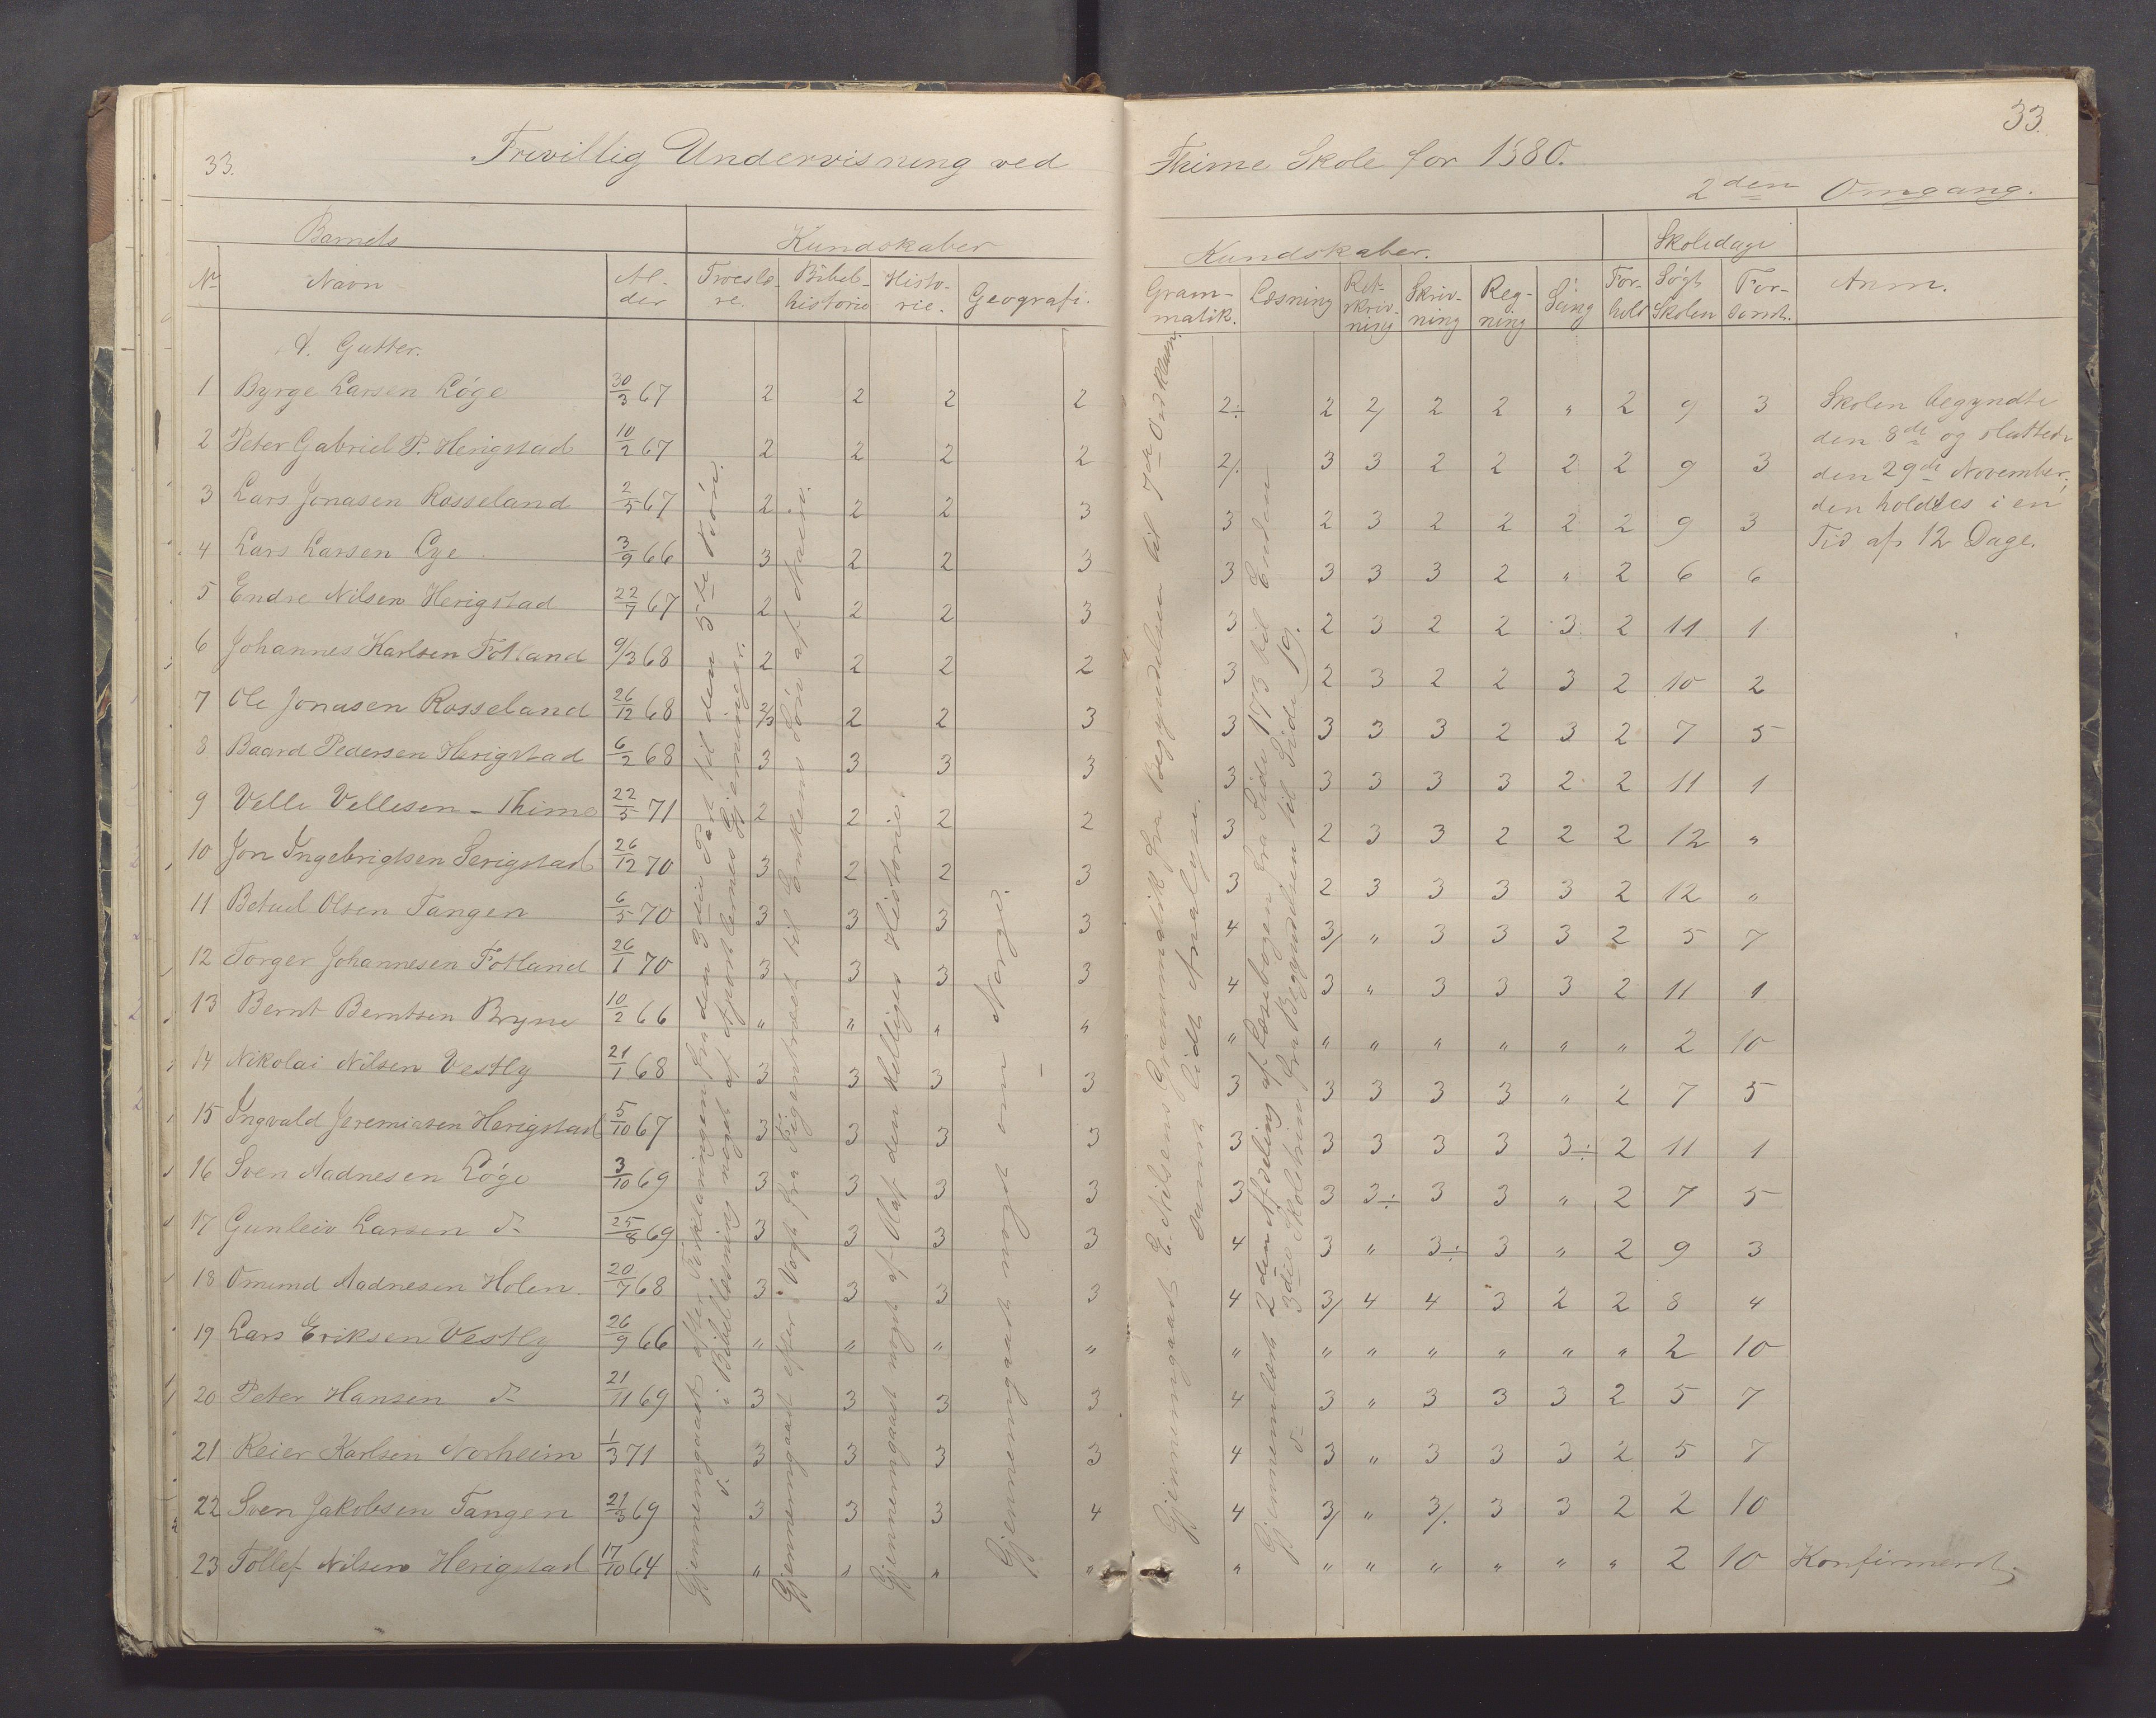 33.
Frivillig Undervisning ved
Thime Skole for 1880.
33.
2den Omgang.
Barnets
Kundskaber
Kundskaber.
Skoledage
No Navn Al-der Troeslæ-re. Bibel-historie Histo-rie. Geografi. Gram-matik. Læsning Ret-skriv-ning Skriv-ning Reg-ning Sang For-hold Søgt Skolen For-sømt. Anm.
A. Gutter.
1 Byrge Larsen Løge 30/3 67 2 2 2 2 2÷ 2 2/ 2 2 " 2 9 3
2 Peter Gabriel P. Herigstad 10/2 67 2 2 2 2 2/. 3 3 2 2 2 2 9 3
3 Lars Jonasen Rosseland 2/5 67 2 2 2 3 3 2 3 2 2 2 2 9 3
4 Lars Larsen Lye 3/9 66 3 2 2 3 3 3 3 3 2 " 2 6 6
5 Endre Nilsen Herigstad 22/7 67 2 2 2 3 3 2 3 2 2 3 2 11 1
6 Johannes Karlsen Fotland 9/3 68 2 2 2 2 3 2 3 2 2 3 2 10 2
7 Ole Jonasen Rosseland 26/12 68 2/3 2 2 3 3 3 3 3 2 3 2 7 5
8 Baard Pedersen Herigstad 6/2 68 3 3 3 3 3 3 3 3 3 2 2 11 1
9 Velle Vellesen Thime 22/5 71 2 2 2 2 3 2 3 3 2 2 2 12 "
10 Jon Ingebrigtsen Serigstad 26/12 70 3 2 2 3 3 2 3 3 3 3 2 12 "
11 Betuel Olsen Tangen 6/5 70 3 3 3 3 4 3/ " 3 3 3 2 5 7
12 Torger Johannesen Fotland 26/1 70 3 3 3 3 4 3 " 3 3 3 2 11 1
13 Bernt Berntsen Bryne 10/2 66 " " " " " " " " " " " 2 10
14 Nikolai Nilsen Vestly 21/1 68 3 3 3 3 3 3 3 3 3 " 2 7 5
15 Ingvald Jeremiasen Herigstad 5/10 67 3 3 3 3 3 3 3 3 3 3÷ 2 11 1
16 Sven Aadnesen Løge 3/10 69 3 3 3 3 3 3 3÷ 3 3 " 2 7 5
17 Gunleiv Larsen do 25/8 69 3 3 3 3 4 3 " 3÷ 3 " 2 9 3
18 Omund Aadnesen Holen. 20/7 68 3 3 3 3 4 3/ 4 4 3 2 2 8 4
19 Lars Eriksen Vestly 26/9 66 " " " " " " " " " " " 2 10
20 Peter Hansen do 21/11 69 3 3 3 3 4 3 " 3 3 3 2 5 7
21 Reier Karlsen Norheim 1/3 71 3 3 3 3 4 3 " 3 3 3 2 5 7
22 Sven Jakobsen Tangen 21/3 69 3 3 3 4 4 3/ " 3/. 3 3 2 2 10
23 Tollef Nilsen Herigstad 17/10 64 " " " " " " " " " " " 2 10 Konfirmeret
Skolen begyndte
den 8de og sluttede
den 29de November;
den holdtes i en
Tid af 12 Dage.
Gjennemgaaet efter Forklaringen fra den 3die Part til den 5te Bøn.
do i Bibellæsning noget af Apostlernes Gjerninger.
Gjennemgaaet efter Vogt fra Figentræet til Enkens Søn af Nain.
Gjennemgaaet noget af Olaf den Helliges Historie.
Gjennemgaaet noget om Norge.
Gjennemgaaet E. Nilsens Grammatik fra Begyndelsen til 7de Ordklasse,
samt lidt Analyse.
Gjennemlæst 2den Afdeling af Læsebogen fra Side 173 til Enden
do 3die Skoletrin fra Begyndelsen til Side 19.